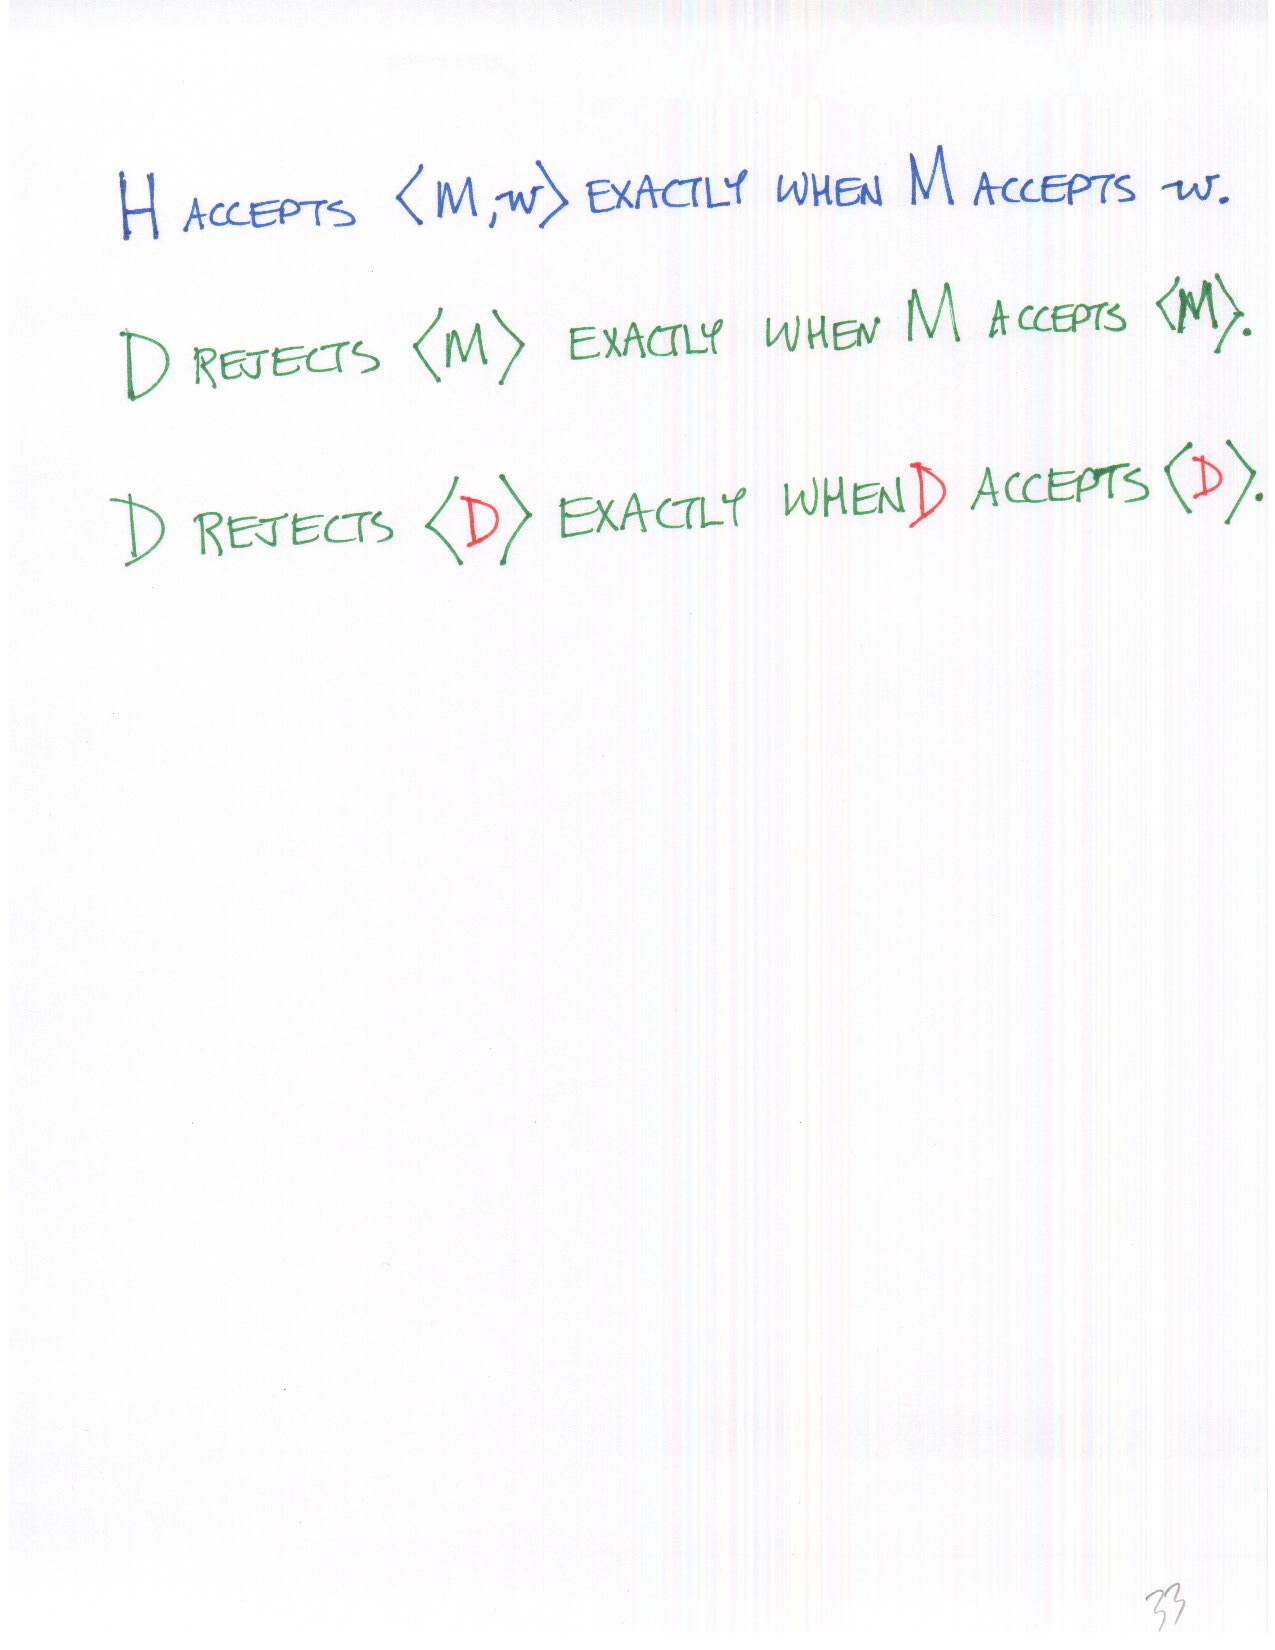 H ACCEPTS ⟨M,w⟩ EXACTLY WHEN M ACCEPTS w.
D REJECTS ⟨M⟩ EXACTLY WHEN M ACCEPTS ⟨M⟩.
D REJECTS ⟨D⟩ EXACTLY WHEN D ACCEPTS ⟨D⟩.
33